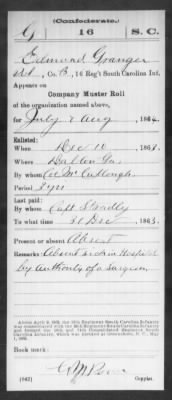 (Confederate.)
G 16 S. C.
Edmund Granger
Co. B, 16 Reg't South Carolina Inf.
Appears on
Company Muster Roll
of the organization named above,
for July & Aug, 1864.
Enlisted:
When Dec 10, 1863.
Where Dalton Ga.
By whom Col McCullough
Period 3 yrs
Last paid:
By whom Capt Stradly
To what time 31 Dec, 1863.
Present or absent Absent
Remarks: Absent sick in Hospital
by authority of a surgeon
Book mark:
(642) Copyist.